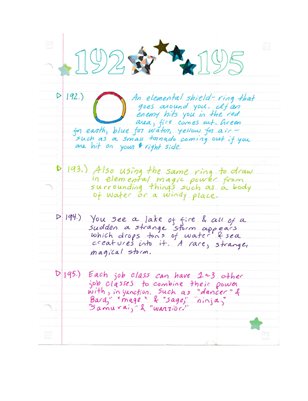 192 195
192.) An elemental shield-ring that
goes around you. If an
enemy hits you in the red
area, fire comes out. Green
for earth, blue for water, yellow for air -
such as a small tornado coming out if you
are hit on your right side.
193.) Also using the same ring to draw
in elemental magic power from
surrounding things such as a body
of water or a windy place.
194.) You see a lake of fire & all of a
sudden a strange storm appears
which drops tons of water & sea
creatures into it. A rare, strange,
magical storm.
195.) Each job class can have 2-3 other
job classes to combine their power
with, injunction. Such as "dancer" &
Bard," "mage" & "sage," "ninja,"
"Samurai," & "warrior."